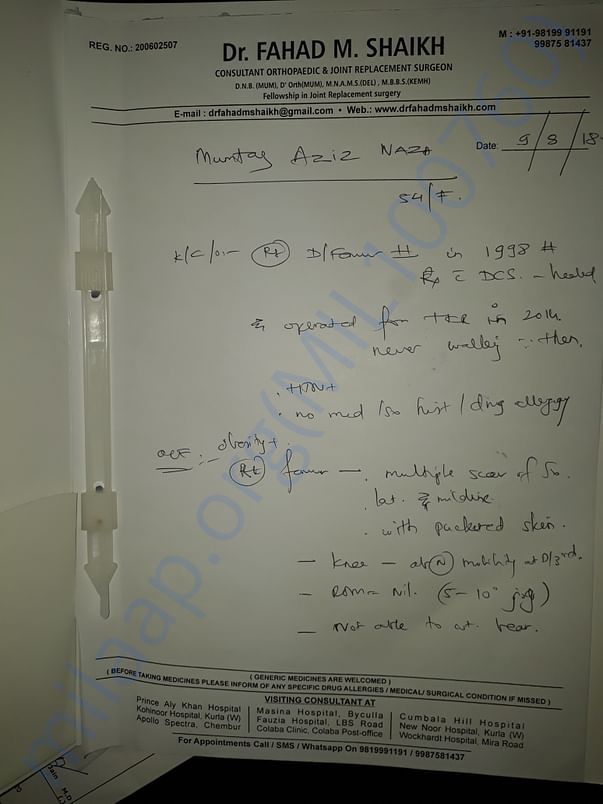 REG. NO.: 200602507
M : +91-98199 91191
99875 81437
Dr. FAHAD M. SHAIKH
CONSULTANT ORTHOPAEDIC & JOINT REPLACEMENT SURGEON
D.N.B. (MUM), D' Orth(MUM), M.N.A.M.S.(DEL) , M.B.B.S.(KEMH)
Fellowship in Joint Replacement surgery
E-mail : drfahadmshaikh@gmail.com • Web.: www.drfahadmshaikh.com
Mumtaz Aziz
Date: 9/8/18
54/F.
K/C/O:- Rt D/Femur # in 1998 #
Rx c DCS. - healed
operated for TKR in 2014.
never walking then.
· HTN+
· no med / Sx hist / drug allergy
O/E:- obesity+.
Rt femur — · multiple scar of Sx.
lat. & midline
· with puckered skin.
— Knee — ab(N) mobility at D/3rd.
— ROM = Nil. (5-10° jog)
— Not able to wt. bear.
milaap.org(MIL100760)
( GENERIC MEDICINES ARE WELCOMED )
( BEFORE TAKING MEDICINES PLEASE INFORM OF ANY SPECIFIC DRUG ALLERGIES / MEDICAL/ SURGICAL CONDITION IF MISSED )
VISITING CONSULTANT AT
Prince Aly Khan Hospital
Kohinoor Hospital, Kurla (W)
Apollo Spectra, Chembur
Masina Hospital, Byculla
Fauzia Hospital, LBS Road
Colaba Clinic, Colaba Post-office
Cumbala Hill Hospital
New Noor Hospital, Kurla (W)
Wockhardt Hospital, Mira Road
For Appointments Call / SMS / Whatsapp On 9819991191 / 9987581437
Jain M.D